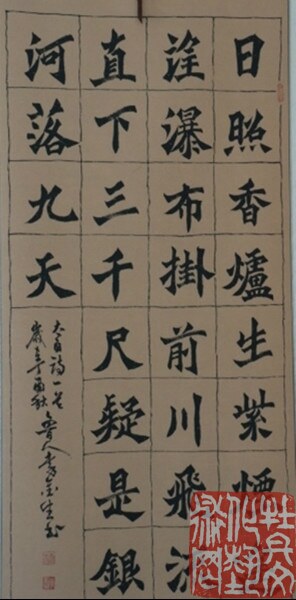 日照香爐生紫煙
瀑布掛前川飛流
直下三千尺疑是銀
河落九天
太白詩一首
丁酉秋魯人李金生書